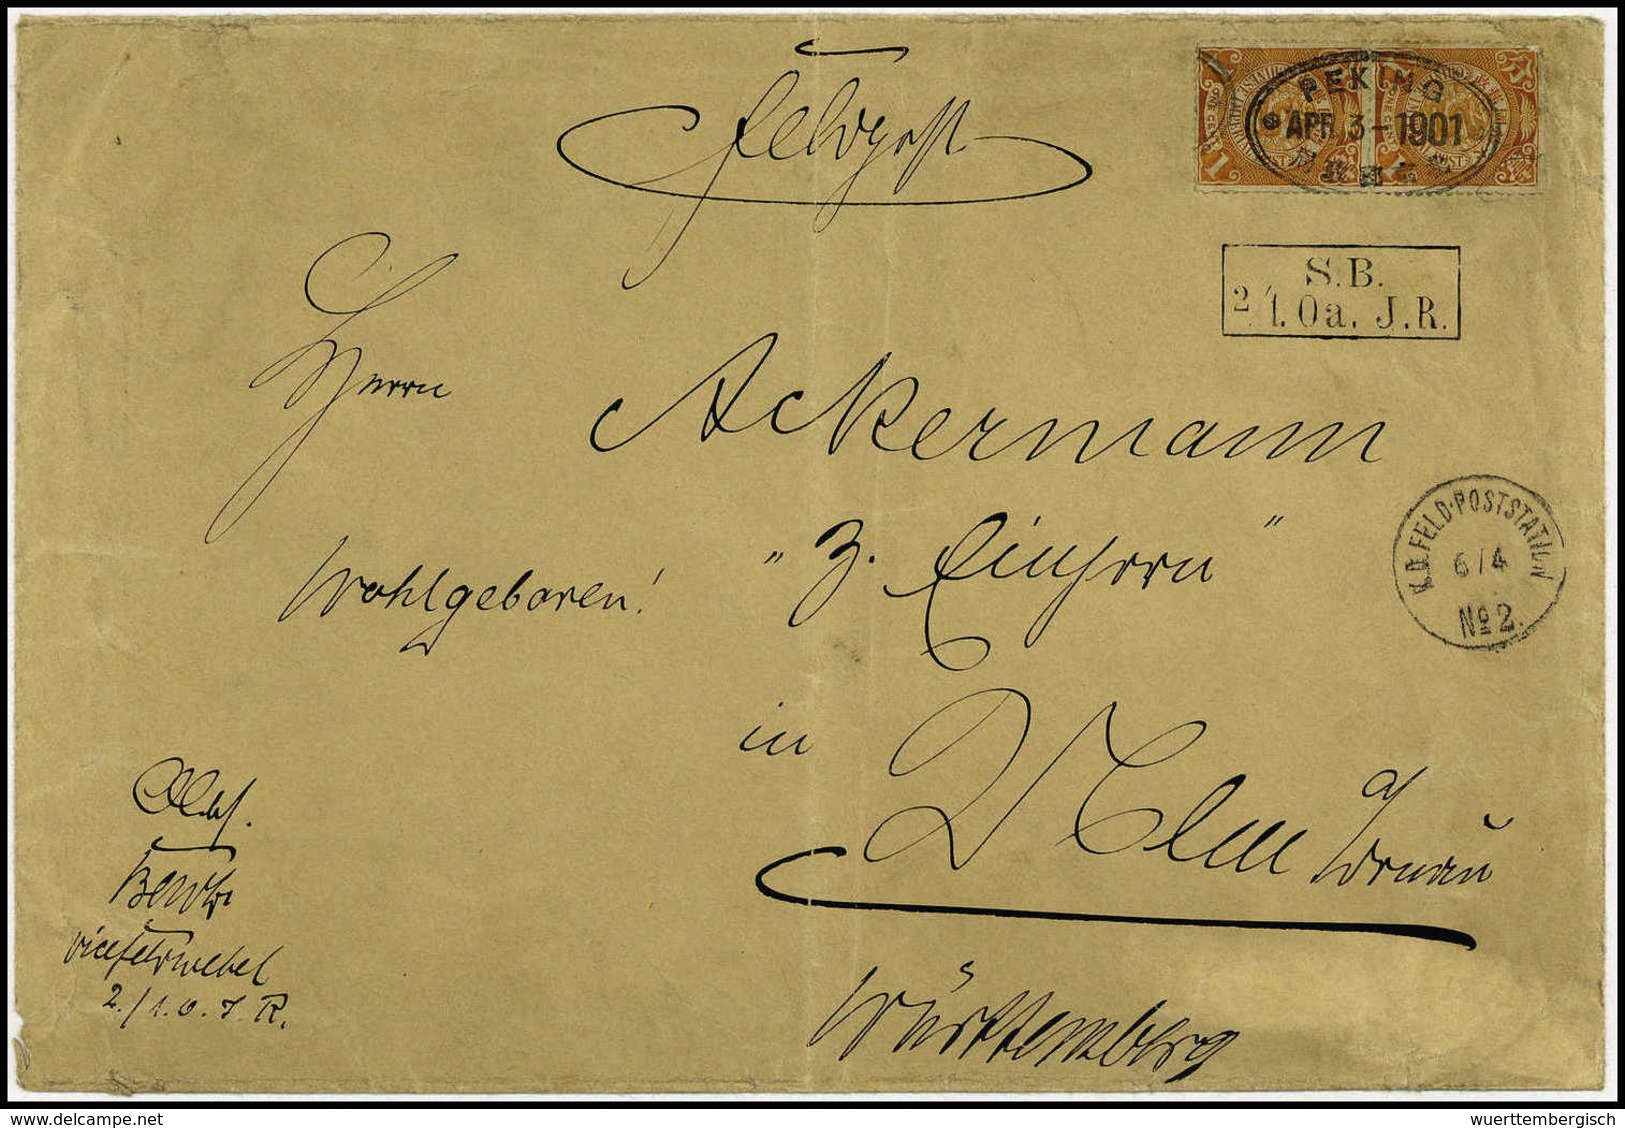 Feldpost
PEKING
APR 3-1901
S.B.
2/1. Oa. J.R.
Herrn Ackermann
Wohlgeboren! "z. Einhorn"
K.D. FELD-POSTSTATION
6/4
No 2.
in Ulm / Donau
Württemberg
Abs.
Vicefeldwebel
2./1. O. J. R.
1 1
wuerttembergisch